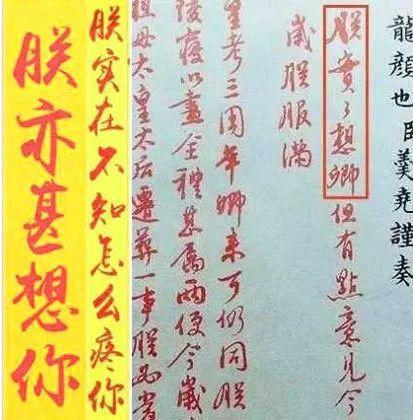 朕亦甚想你
朕实在不知怎么疼你
龍顏也臣羹堯謹奏
朕實々想卿但有點意見今
歲朕服滿
皇考三周年卿來可仍同朕
陵寢以盡全禮甚屬兩便今歲
祖母太皇太后遷葬一事朕